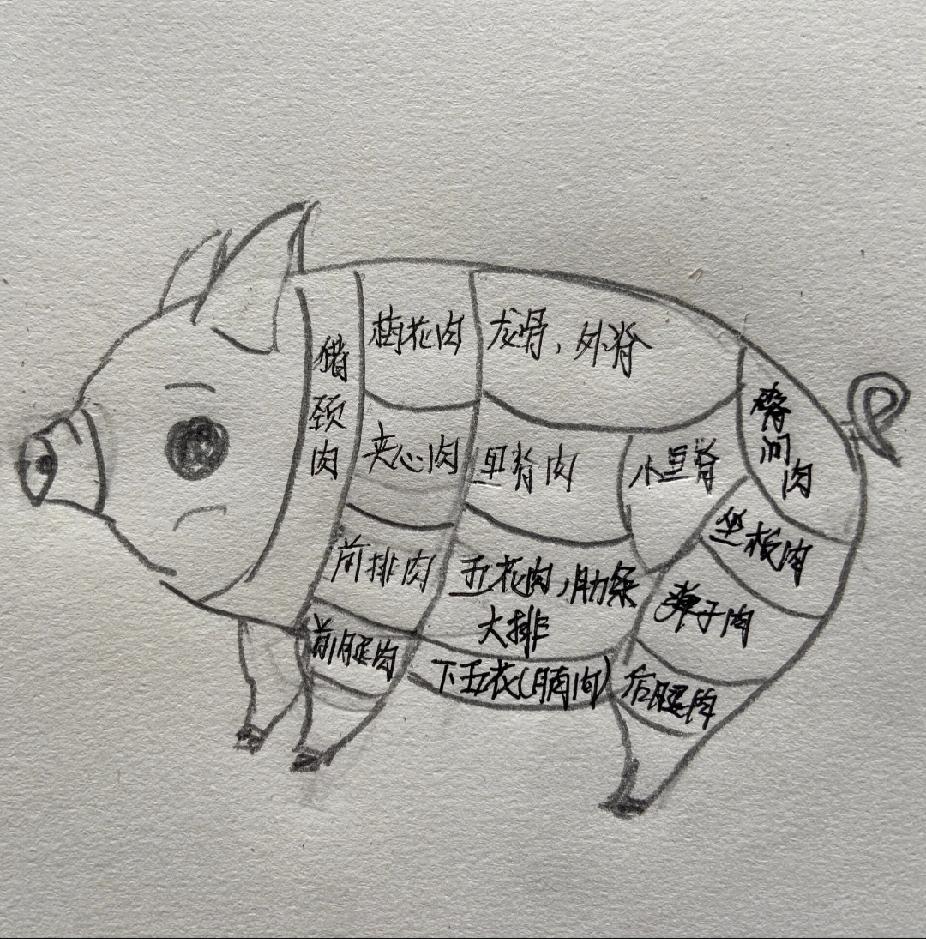 猪颈肉
梅花肉
龙骨,外脊
夹心肉
里脊肉
小里脊
臀间肉
坐板肉
前排肉
五花肉,肋条
大排
弹子肉
前腿肉
下五花(腩肉)
后腿肉